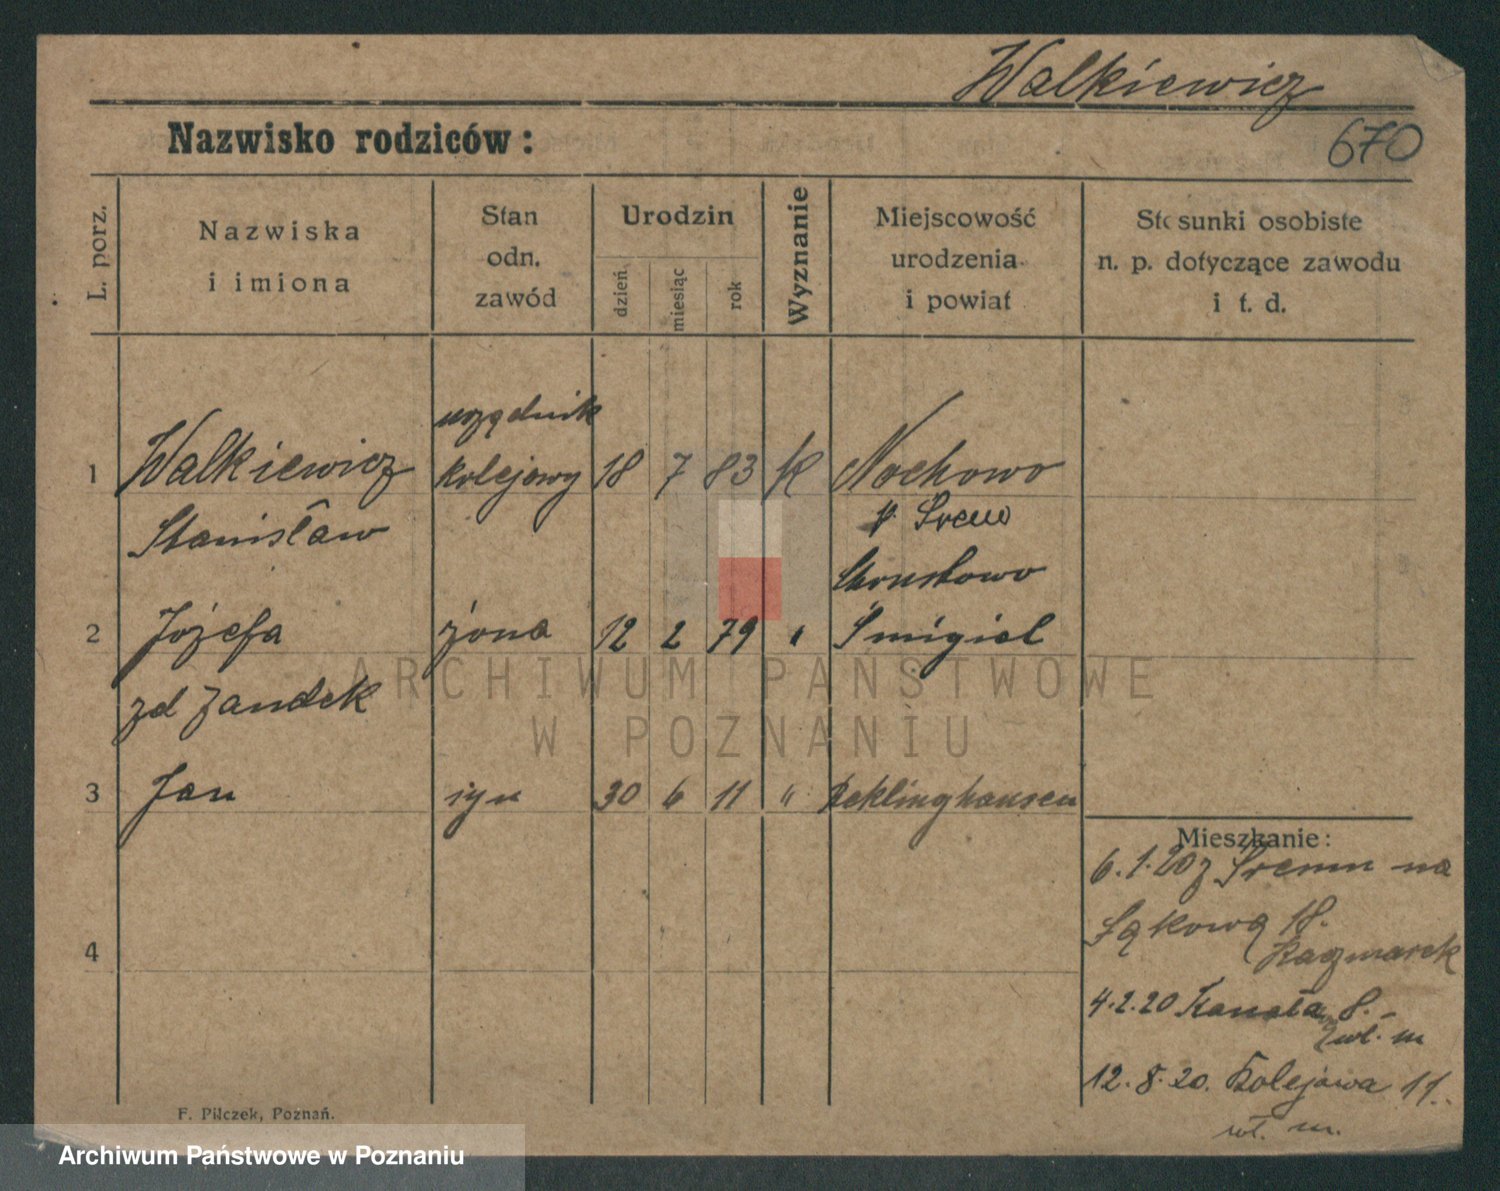 Walkiewicz
670
Nazwisko rodziców:
L. porz.
Nazwiska
i imiona
Stan
odn.
zawód
Urodzin
dzień
miesiąc
rok
Wyznanie
Miejscowość
urodzenia
i powiat
Stosunki osobiste
n. p. dotyczące zawodu
i t. d.
urzędnik
1 Walkiewicz kolejowy 18 7 83 K Nochowo
Stanisław p. Śrem
2 Józefa żona 12 2 79 " Śmigiel
zd Zandek
3 Jan syn 30 6 11 " Recklinghausen
Mieszkanie:
6.1.20 z Śremu na
Łąkową 18.
Kaczmarek
4.2.20 8.-
wł. m
4
12.8.20. Kolejowa 11.
wł. m.
F. Pilczek, Poznań.
ARCHIWUM PAŃSTWOWE
W POZNANIU
Archiwum Państwowe w Poznaniu